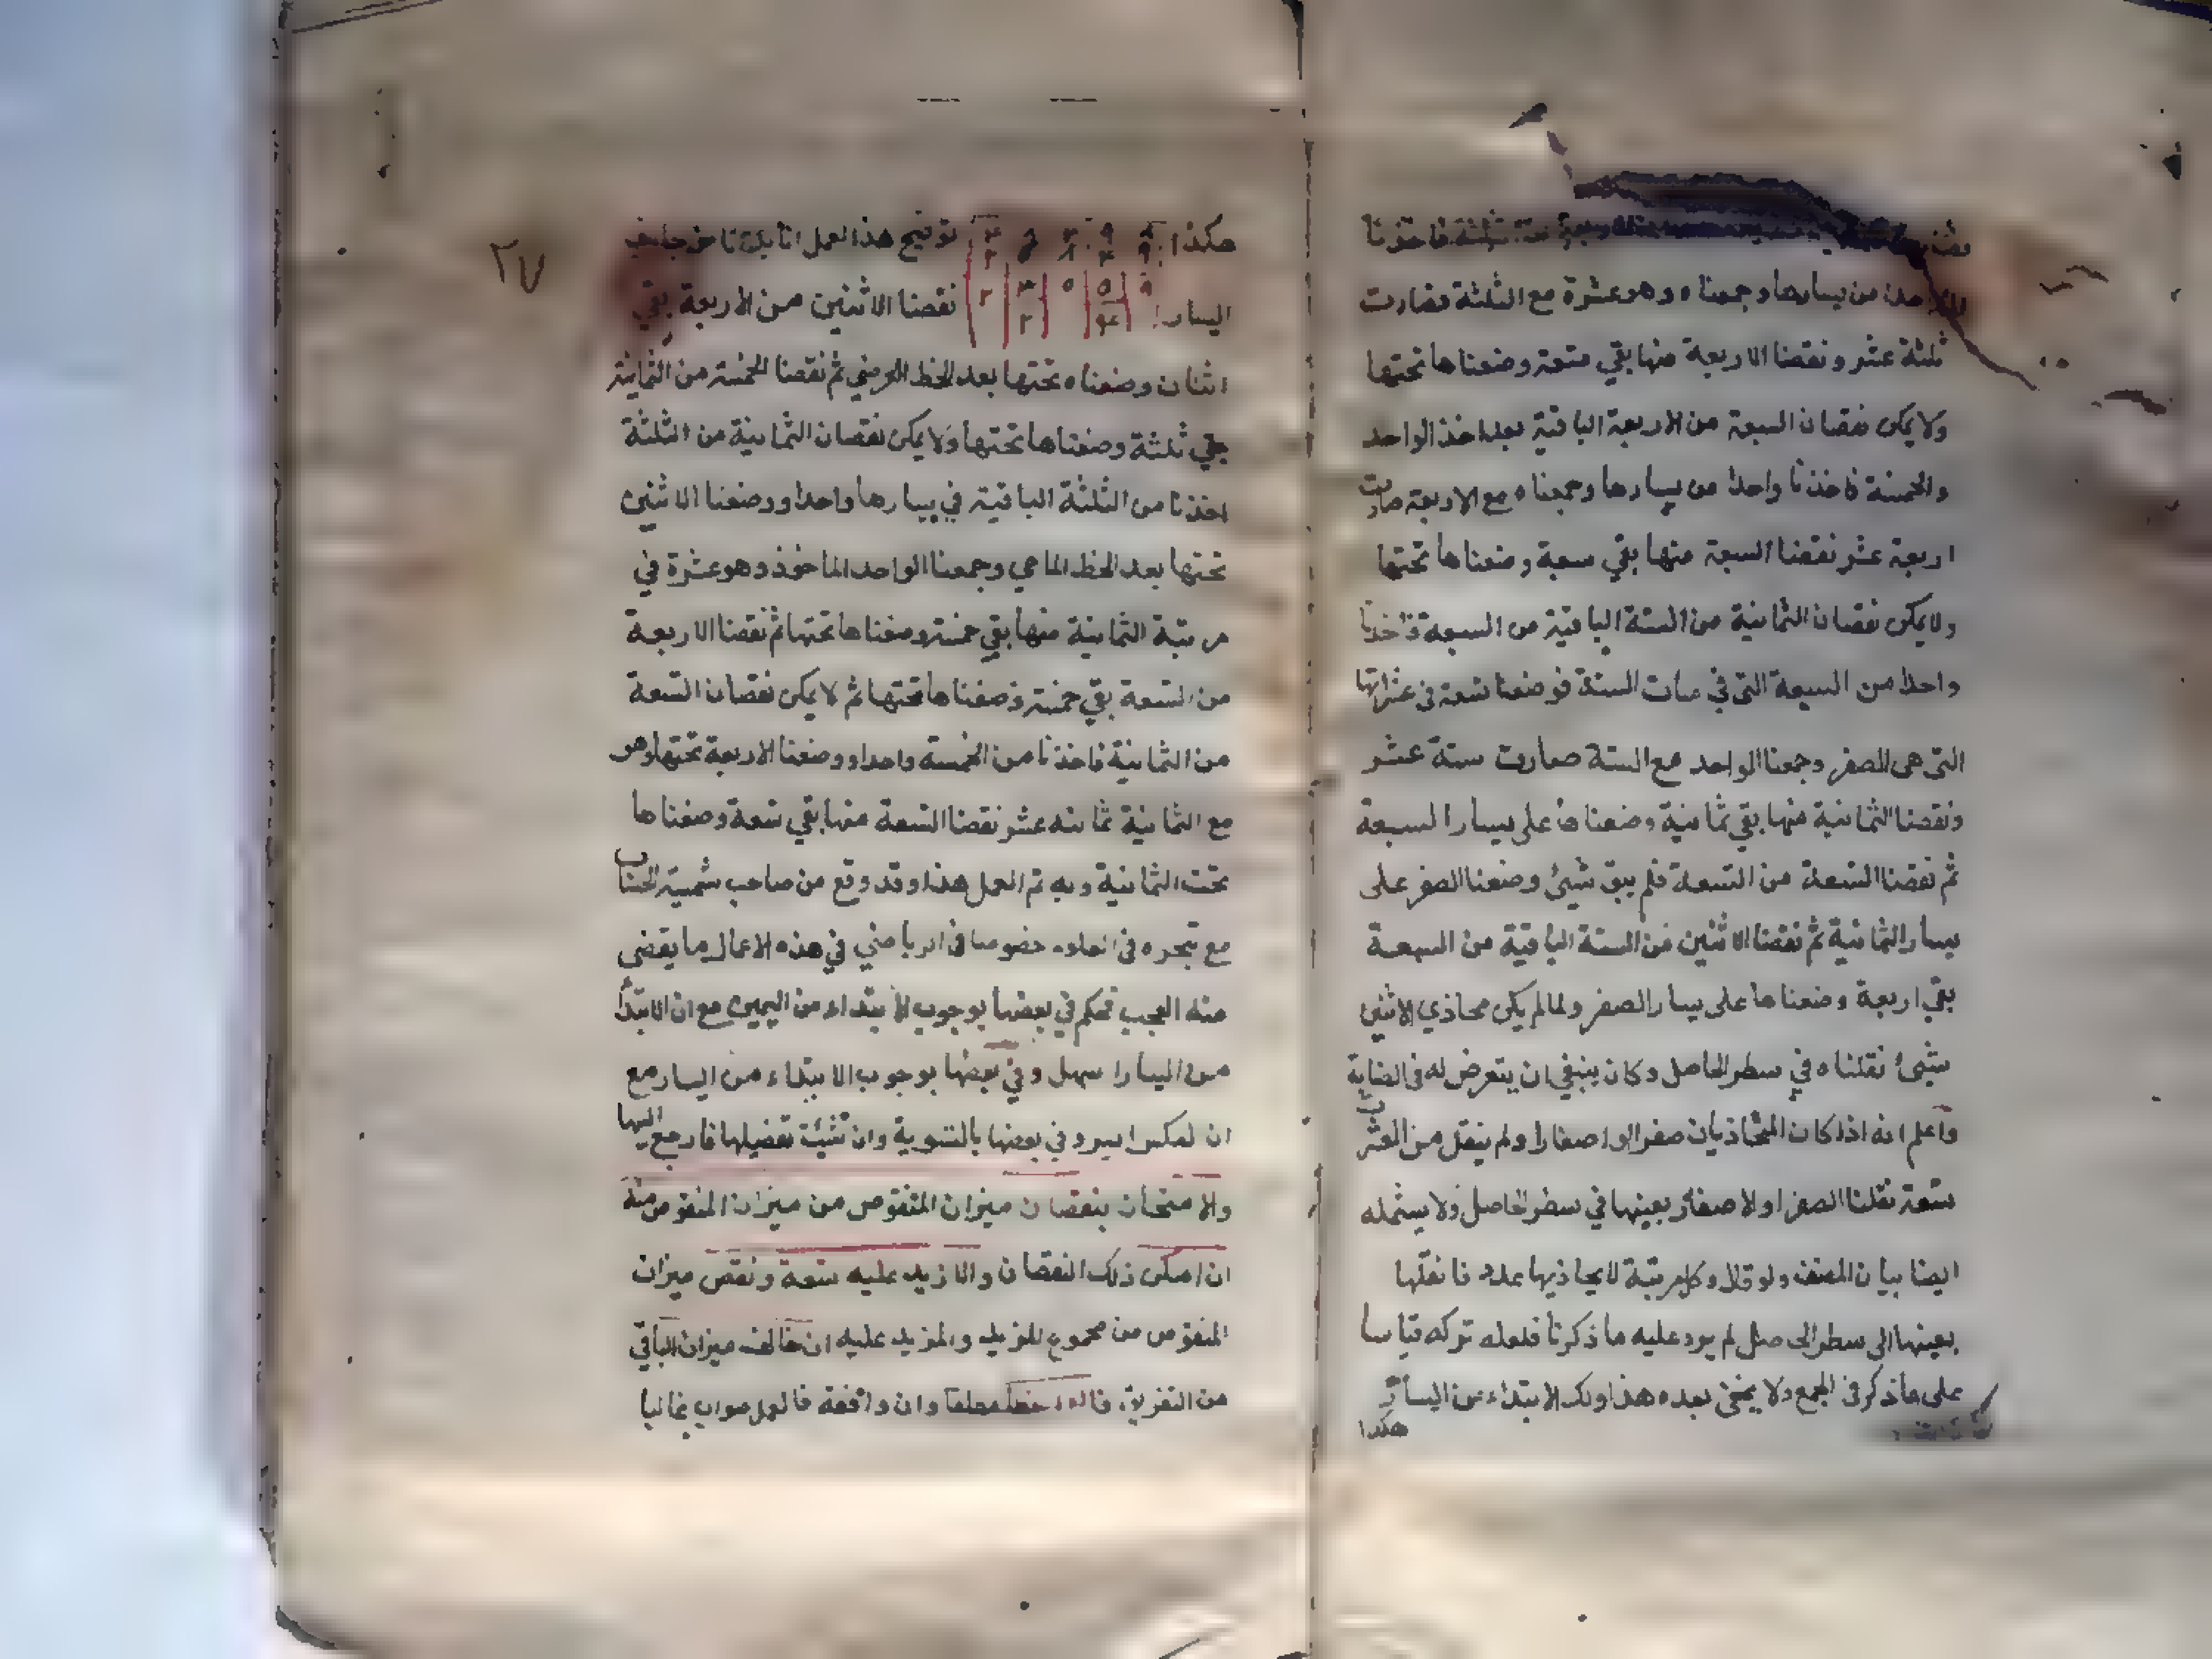 ثلثة فاخذنا
من يسارها وجمعناه وهو عشرة مع الثلثة فصارت
ثلثة عشر ونقصنا الاربعة منها بقي ستعة وضعناها تحتها
ولا يمكن نقصان السبعة من الاربعة الباقية بعد اخذ الواحد
والخمسة فاخذنا واحدا من يسارها وجمعناه مع الاربعة صارت
اربعة عشر نقصنا السبعة منها بقي سبعة وضعناها تحتها
ولا يمكن نقصان الثمانية من الستة الباقية من السبعة فاخذنا
واحدا من السبعة التي في مئات الستة فوضعنا تسعة في عشراتها
التى هى للصفر وجمعنا الواحد مع الستة صارت ستة عشر
ونقصنا الثمانية منها بقي ثمانية وضعناها على يسار السبعة
ثم نقصنا التسعة من التسعة فلم يبق شيئ وضعنا الصفر على
يسار الثمانية ثم نقصنا الاثنين من الستة الباقية من السبعة
بقي اربعة وضعناها على يسار الصفر ولما لم يكن محاذي الاثنين
شيئ نقلناه في سطر الحاصل وكان ينبغي ان يتعرض له في
واعلم انه اذا كان المحاذيان صفرا او اصفارا ولم ينقل من
ستعة نقلنا الصفر او الاصفار بعينها في سطر الحاصل ولا يشمله
ايضا بيان المصنف ولو قال وكل مرتبة لا يحاذيها عدد فانقلها
بعينها الى سطر الحاصل لم يرد عليه ما ذكرنا فلعله تركه قياسا
على ما ذكر في الجمع ولا يخفى بعده هذا ولك الابتداء من اليسار
هكذا
٢٧
هكذا توضيح هذا العمل انا بدأنا من جانب
اليسار نقصنا الاثنين من الاربعة بقي
اثنان وضعناه تحتها بعد الخط العرضي ثم نقصنا الخمسة من الثمانية
بقي ثلثة وضعناها تحتها ولا يمكن نقصان الثمانية من الثلثة
اخذنا من الثلثة الباقية في يسارها واحدا ووضعنا الاثنين
تحتها بعد الخط الماحي وجمعنا الواحد الماخوذ وهو عشرة في
مرتبة الثمانية منها بقي خمسة وضعناها تحتها ثم نقصنا الاربعة
من التسعة بقي خمسة وضعناها تحتها ثم لا يمكن نقصان التسعة
من الثمانية فاخذنا من الخمسة واحدا ووضعنا الاربعة تحتها وهو
مع الثمانية ثمانيه عشر نقصنا التسعة منها بقي تسعة وضعناها
تحت الثمانية وبه تم العمل هذا وقد وقع من صاحب شمسية الحساب
مع تبحره في العلوم خصوصا في الرياضي في هذه الاعمال ما يقضى
منه العجب فحكم في بعضها بوجوب الابتداء من اليمين مع ان الابتدا
من اليسار اسهل وفي بعضها بوجوب الابتداء من اليسار مع
ان لعكس ايسر وفي بعضها بالتسوية وان شئت تفصيلها فارجع اليها
والامتحان بنقصان ميزان المنقوص من ميزان المنقوص منه
ان امكن ذلك النقصان والا زيد عليه ستعة ونقص ميزان
المنقوص من مجموع المزيد والمزيد عليه ان خالف ميزان الباقي
من التفريق فالعمل خطأ مطلقا وان وافقه فالعمل صواب غالبا